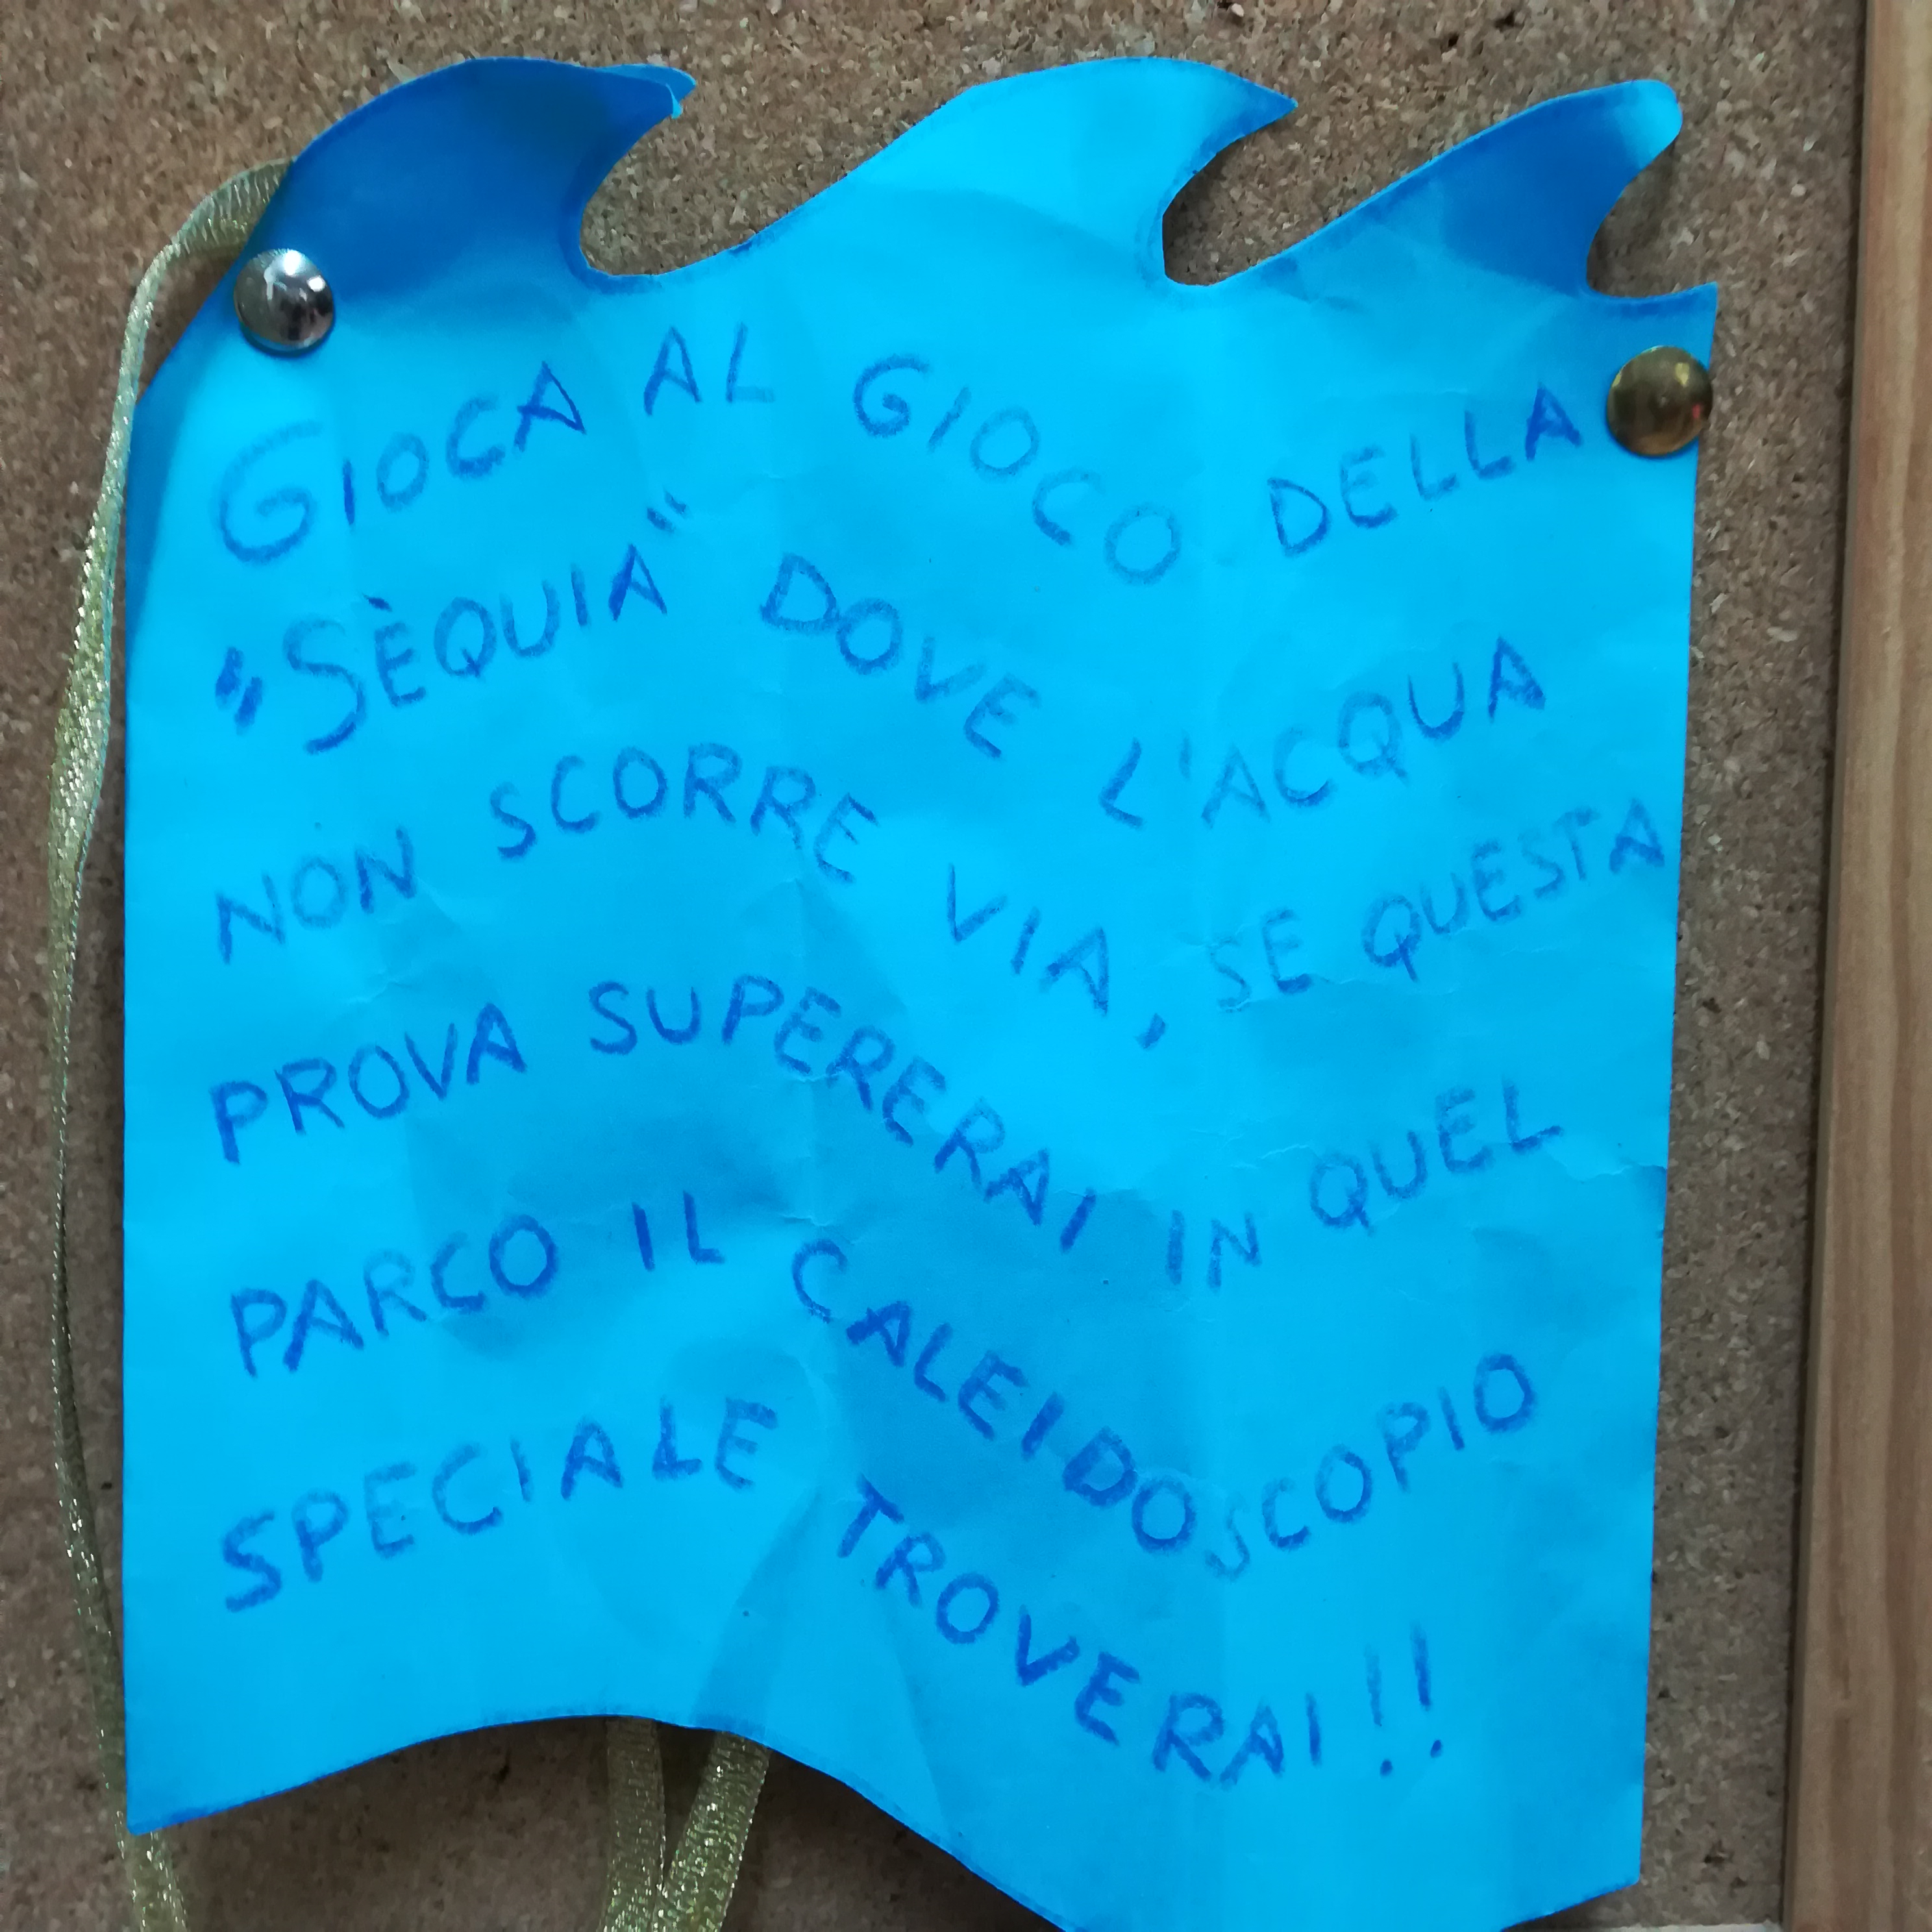 GIOCA AL GIOCO DELLA
"SÈQUIA" DOVE L'ACQUA
NON SCORRE VIA, SE QUESTA
PROVA SUPERERAI IN QUEL
PARCO IL CALEIDOSCOPIO
SPECIALE TROVERAI!!